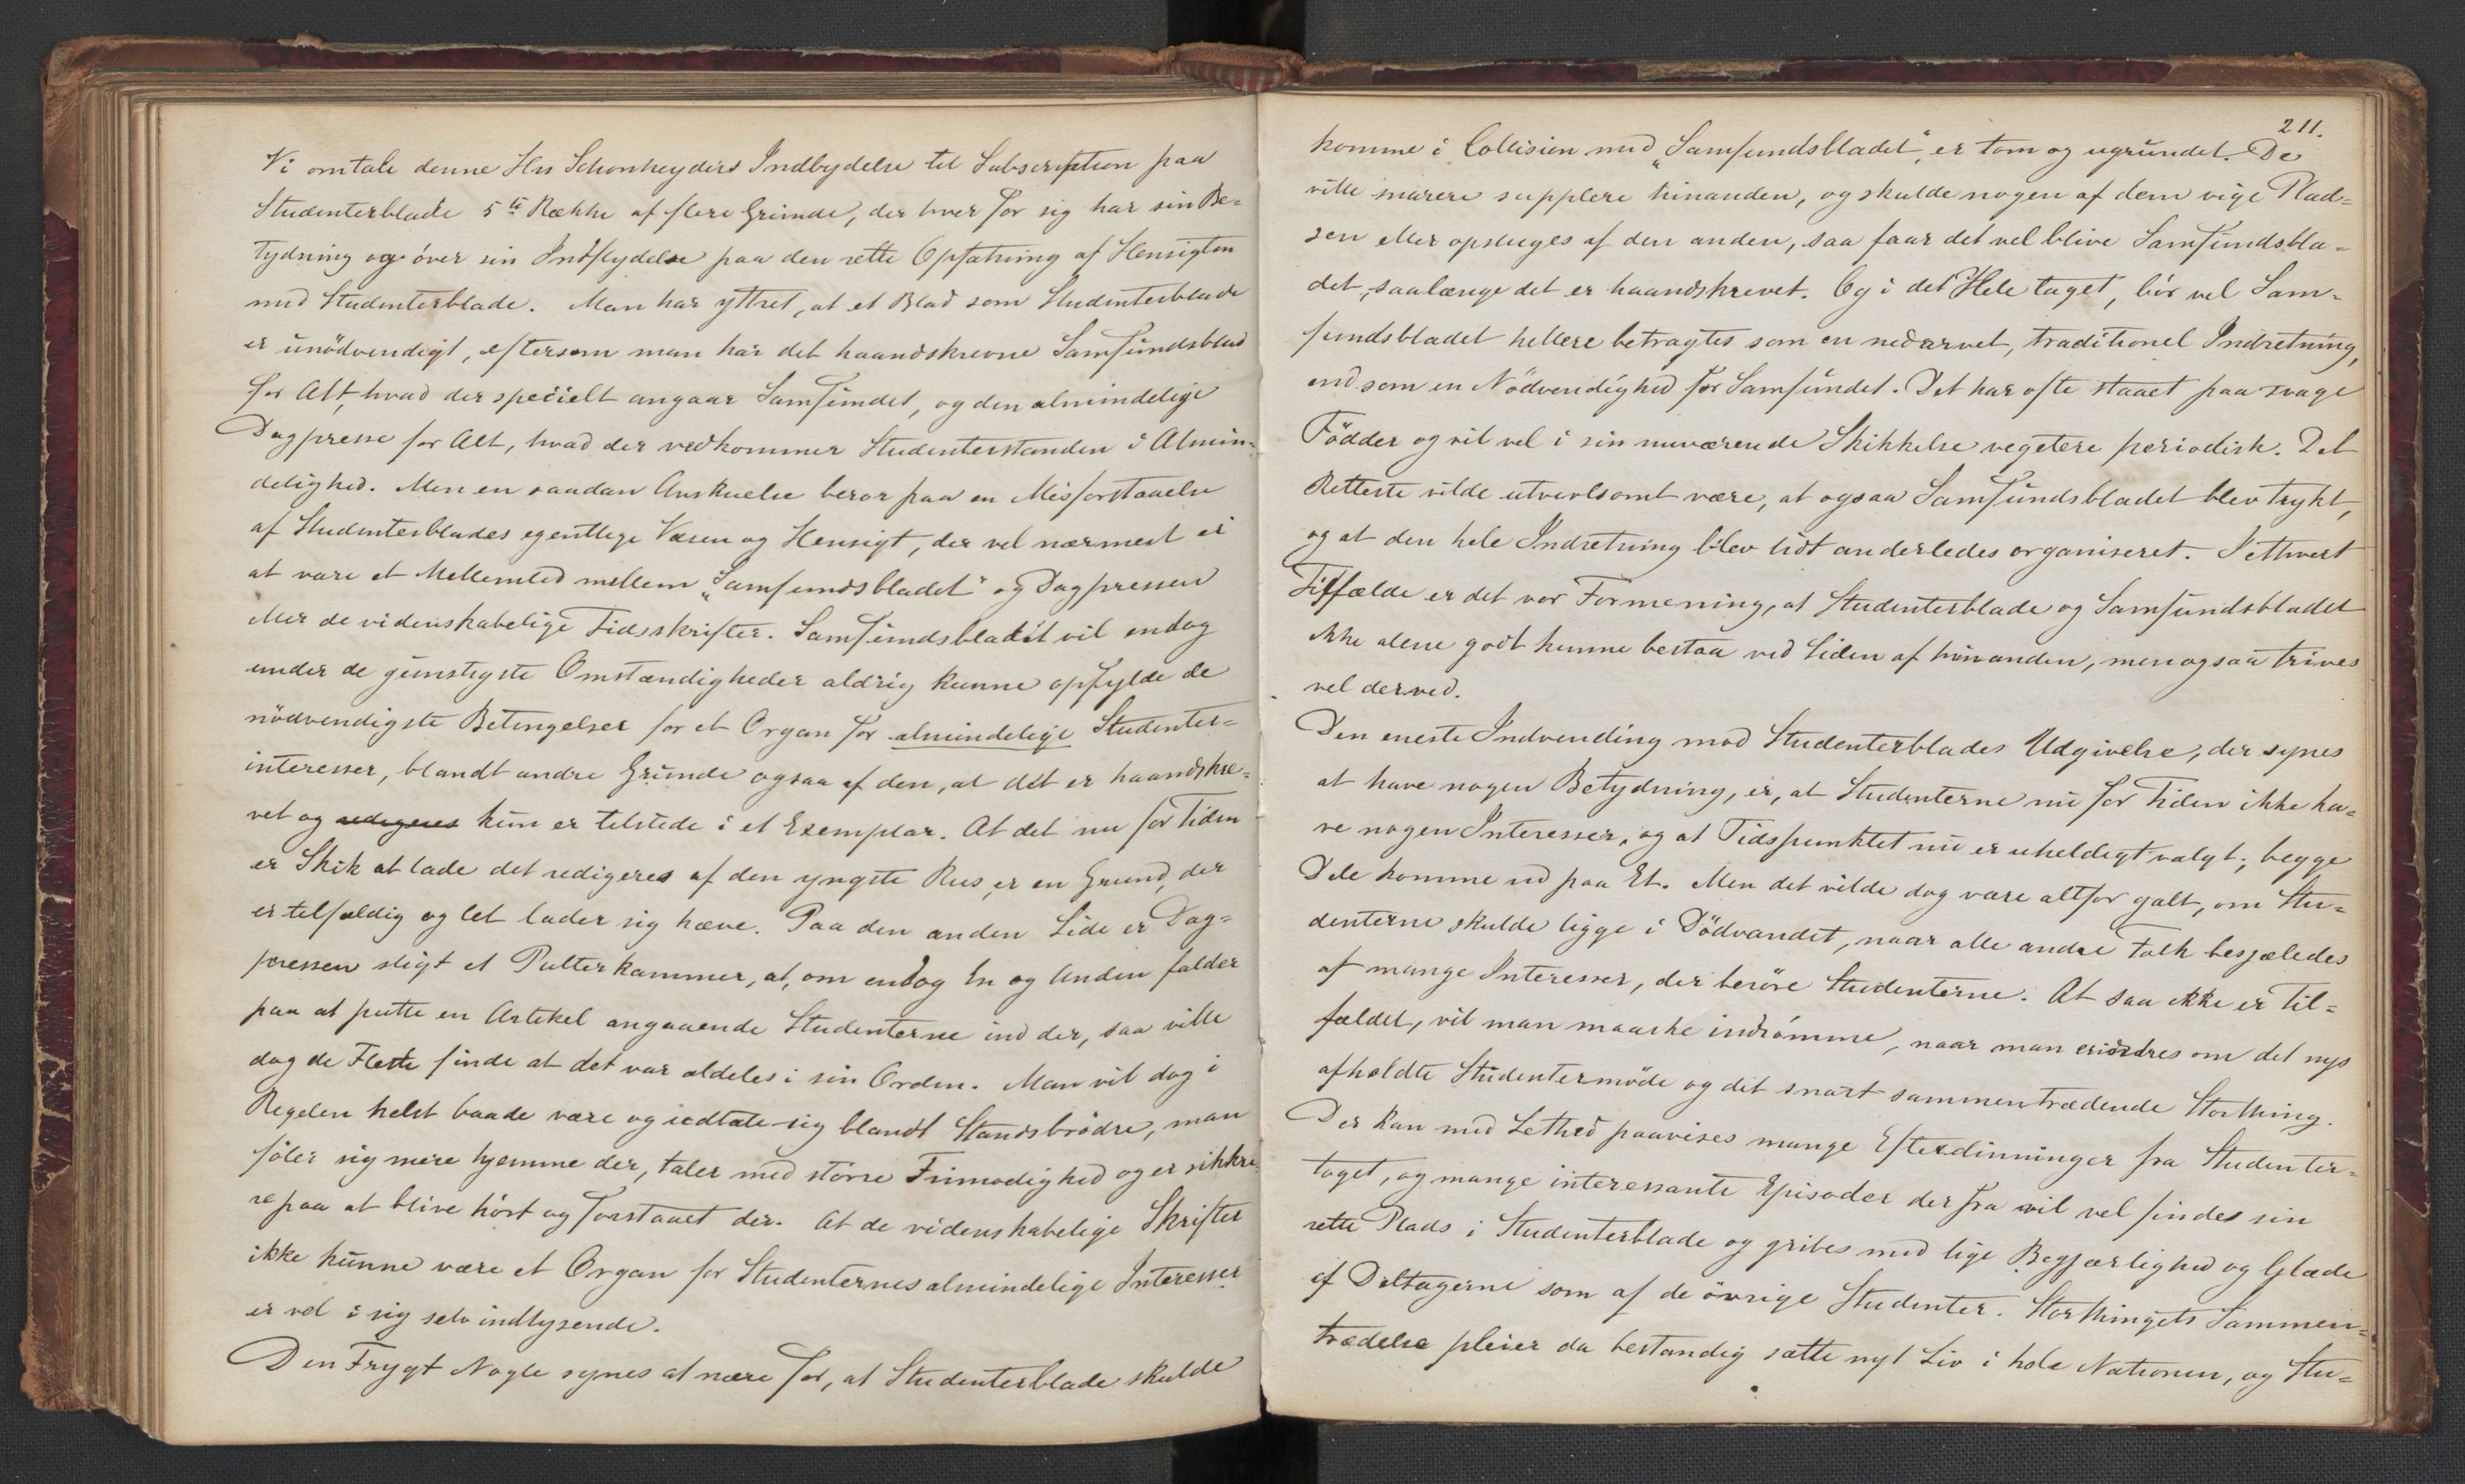 Vi omtale denne Hrr Schonheyders Indbydelse til Subscription paa
Studenterblade 5te Række af flere Grunde, der hver for sig har sin Be=
tydning og över sin Indflydelse paa den rette Opfatning af Hensigten
med Studenterblade. Man har yttret, at et Blad som Studenterblade
er unödvendigt, eftersom man har det haandskrevne Samfundsblad
for Alt, hvad der specielt angaar Samfundet, og den almindelige
Dagpresse for Alt, hvad der vedkommer Studenterstanden i Almin=
delighed. Men en saadan Anskuelse beror paa en Misforstaaelse
af Studenterblades egentlige Væsen og Hensigt, der vel nærmest ei
at være et Mellemled mellem „Samfundsbladet" og Dagpressen
eller de videnskabelige Tidsskrifter. Samfundsbladet vil endog
under de gunstigste Omstændigheder aldrig kunne opfylde de
nödvendigste Betingelser for et Organ for almindelige Studenter=
interesser, blandt andre Grunde ogsaa af den, at det er haandskre=
vet og redigeres kun er tilstede i et Exemplar. At det nu for Tiden
er Skik at lade det redigeres af den yngste Rus, er en Grund, der
er tilfældig og let lader sig hæve. Paa den anden Side er Dag=
pressen sligt et Pulterkammer, at, om endog En og Anden falder
paa at putte en Artikel angaaende Studenterne ind der, saa ville
dog de Fleste finde at det var aldeles i sin Orden. Man vil dog i
Regelen helst baade være og udtale sig blandt Standsbrödre, man
föler sig mere hjemme der, taler med större Frimodighed og er sikkre=
re paa at blive hört og forstaaet der. At de videnskabelige Skrifter
ikke kunne være et Organ for Studenternes almindelige Interesser
er vel i sig selv indlysende.
Den Frygt Nogle synes at nære for, at Studenterblade skulde
211.
komme i Collision med „Samfundsbladet", er tom og ugrundet. De
ville snarere supplere hinanden, og skulde nogen af dem vige Plad=
sen eller opsluges af den anden, saa faar det vel blive Samfundsbla=
det, saalænge det er haandskrevet. Og i det Hele taget, bör vel Sam=
fundsbladet hellere betragtes som en nedarvet, traditionel Indretning,
end som en Nödvendighed for Samfundet. Det har ofte staaet paa svage
Födder og vil vel i sin nuværende Skikkelse vegetere periodisk. Det
Retteste vilde utvivlsomt være, at ogsaa Samfundsbladet blev trykt,
og at den hele Indretning blev lidt anderledes organiseret. I ethvert
Tilfælde er det vor Formening, at Studenterblade og Samfundsbladet
ikke alene godt kunne bestaa ved Siden af hinanden, men ogsaa trives
vel derved.
Den eneste Indvending mod Studenterblades Udgivelse, der synes
at have nogen Betydning, er, at Studenterne nu for Tiden ikke ha=
ve nogen Interesser, og at Tidspunktet nu er uheldigt valgt; begge
Dele komme ud paa Et. Men det vilde dog være altfor galt, om Stu=
denterne skulde ligge i Dödvandet, naar alle andre Folk besjæledes
af mange Interesser, der beröre Studenterne. At saa ikke er Til=
fældet, vil man maaske indrömme, naar man erindres om det nys
afholdte Studentermöde og det snart sammentrædende Storthing.
Der kan med Lethed paavises mange Efterdinninger fra Studenter=
toget, og mange interessante Episoder derfra vil vel findes sin
rette Plads i Studenterblade og gribes med lige Begjærlighed og Glæde
af Deltagerne som af de övrige Studenter. Storthingets Sammen=
trædelse pleier da bestandig sætte nyt Liv i hele Nationen, og Stu=